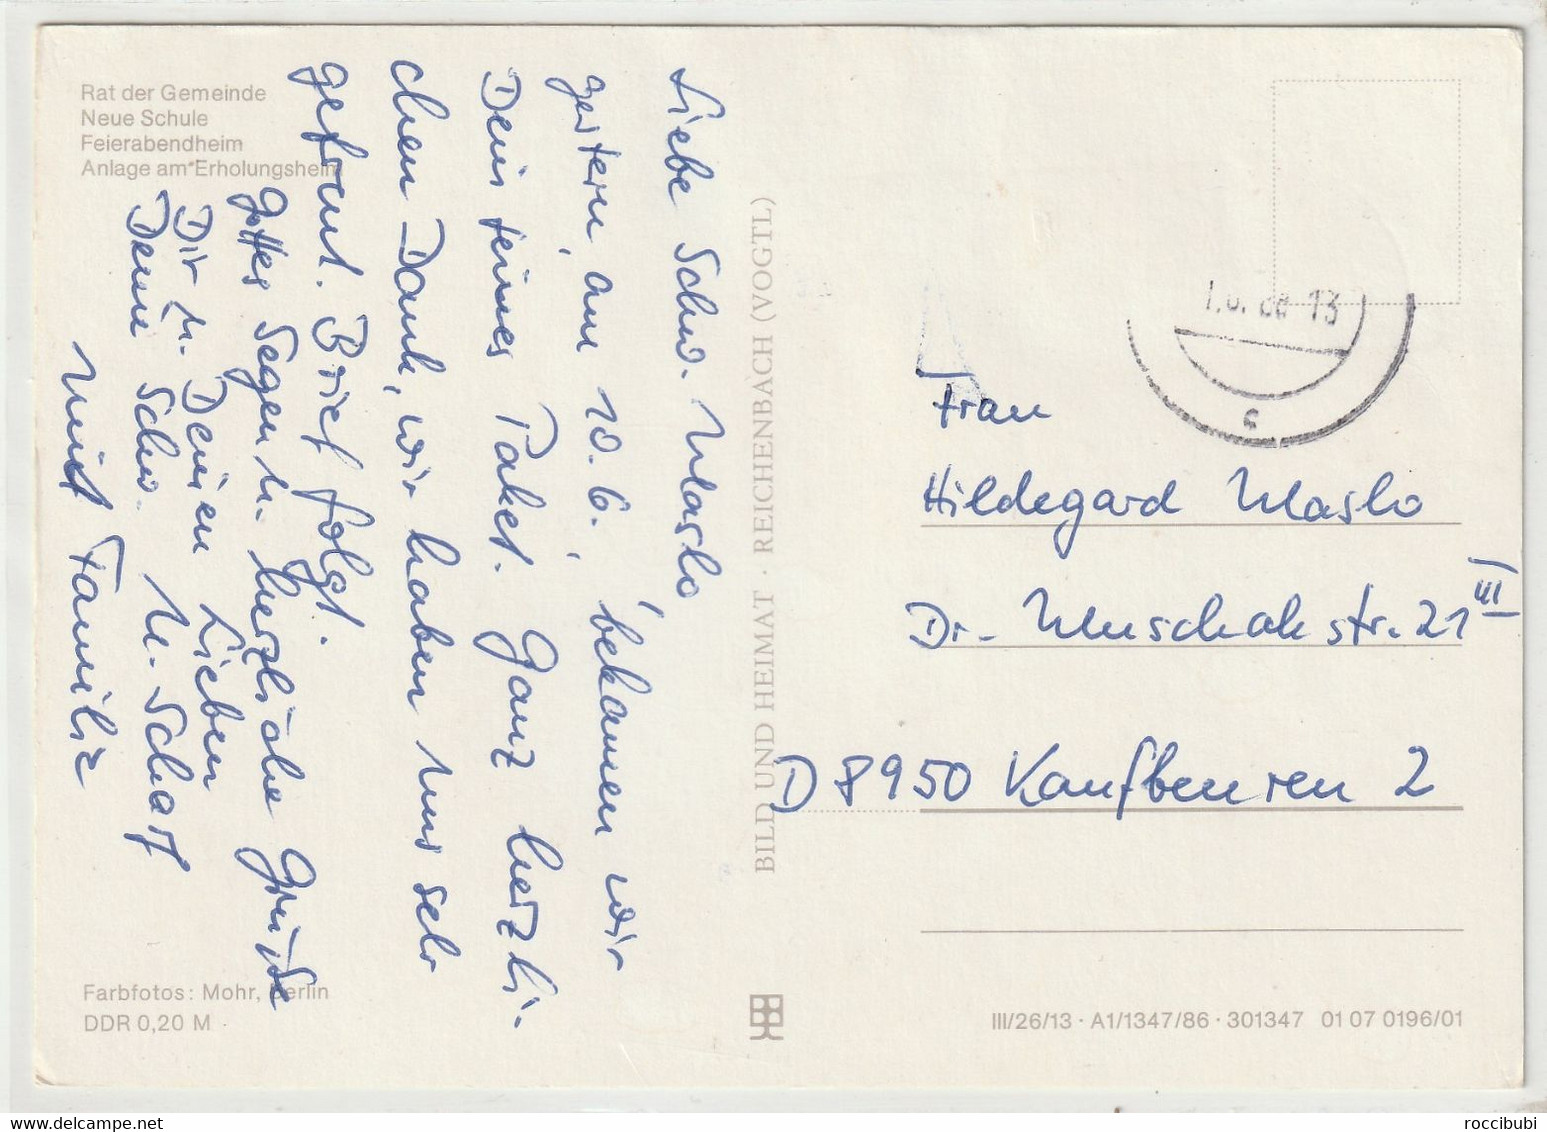 Rat der Gemeinde
Neue Schule
Feierabendheim
Anlage am Erholungsheim
Liebe Schw. Maslo
gestern, am 10.6., bekamen wir
Dein feines Paket. Ganz herzli-
chen Dank, wir haben uns sehr
gefreut. Brief folgt.
Gottes Segen u. herzliche Grüße
Dir u. Deinen Lieben
Deine Schw. U. Scharf
mit Familie
Farbfotos: Mohr, Berlin
DDR 0,20 M
BILD UND HEIMAT · REICHENBACH (VOGTL)
13
c
Frau
Hildegard Maslo
Dr. str. 21 III
D 8950 Kaufbeuren 2
III/26/13 · A1/1347/86 · 301347 01 07 0196/01
roccibubi